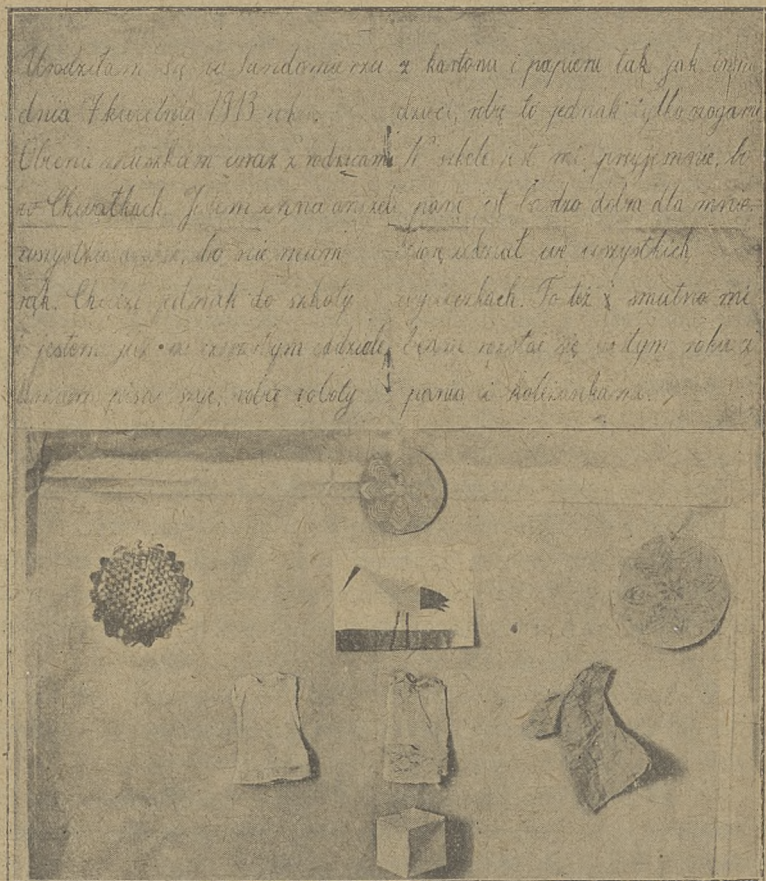 Urodziłam się w Sandomierzu
dnia 7 kwietnia 1913 roku.
Obecnie mieszkam wraz z rodzicami
w Chwałkach. Jestem inna aniżeli
wszystkie bo nie mam
rąk. Chodzę jednak do szkoły
i jestem już w czwartym oddziale,
Umiem pisać szyć, robić roboty
z kartonu i papieru tak jak inne
dzieci, robię to jednak tylko nogami
W szkole jest mi przyjemnie, bo
pani jest bardzo dobra dla mnie.
Biorę udział we wszystkich
wycieczkach. To też i smutno mi
będzie rozstać się w tym roku z
panią i koleżankami.